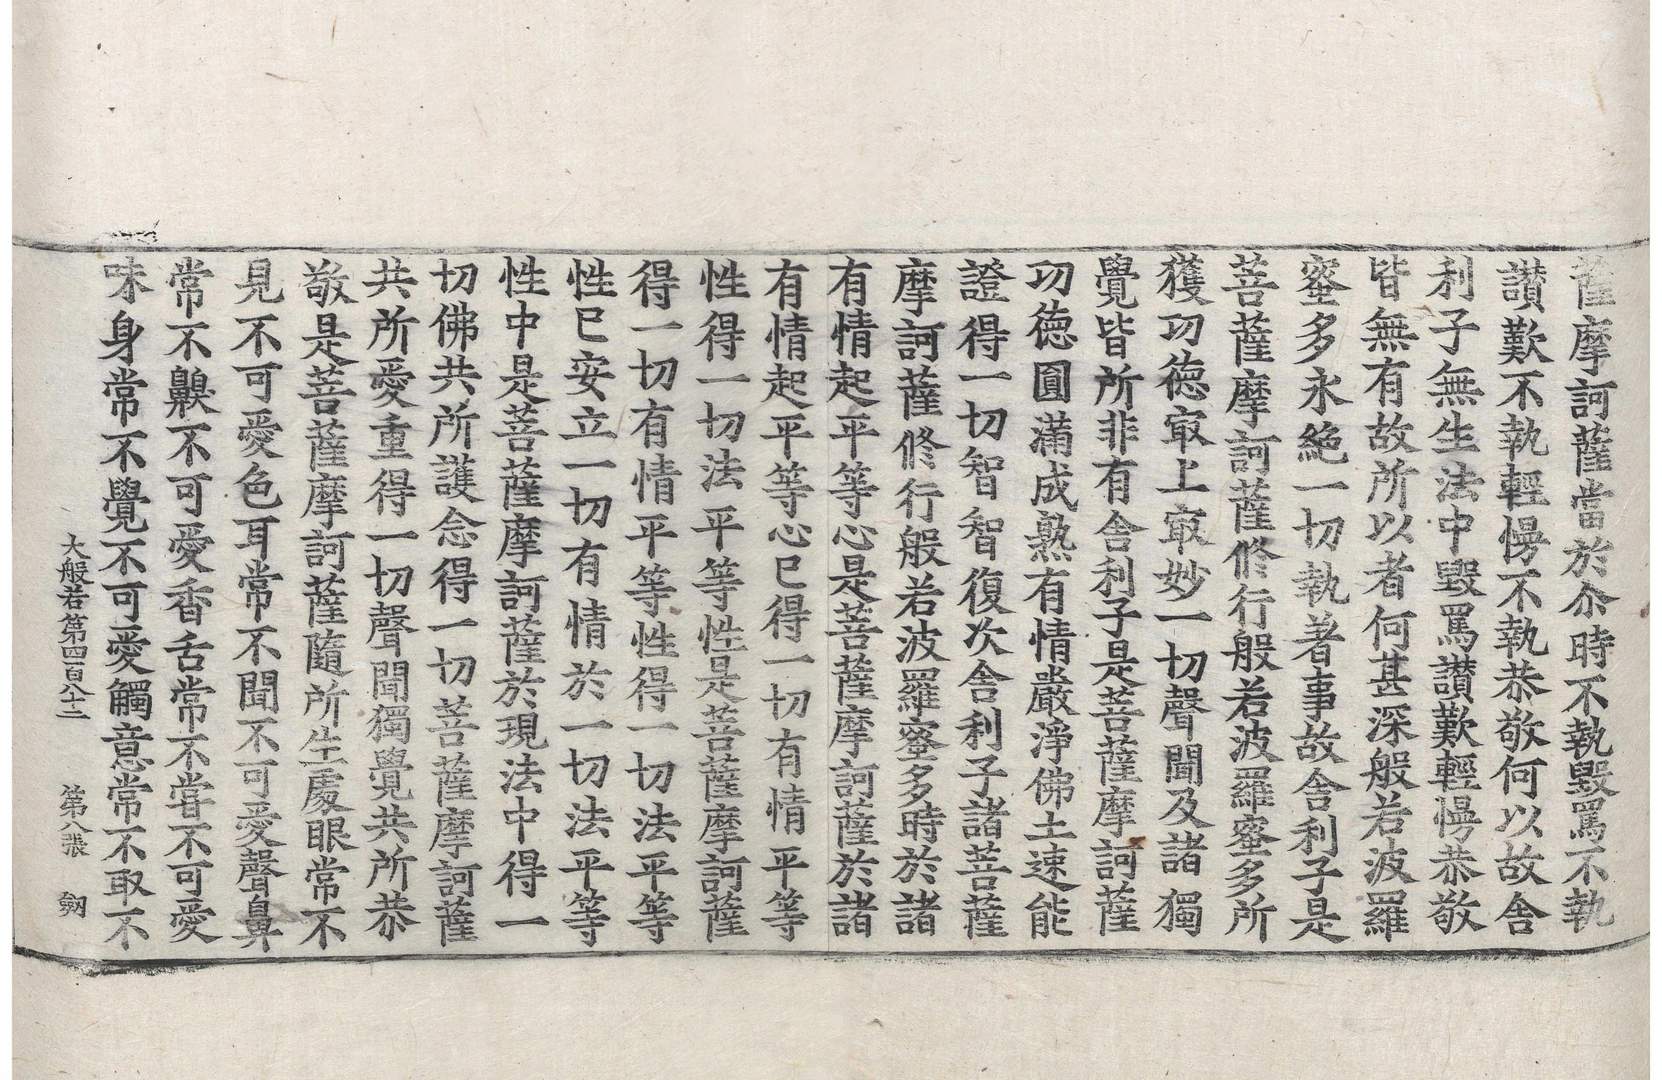 薩摩訶薩當於尒時不執毀罵不執
讃歎不執輕慢不執恭敬何以故舍
利子無生法中毀罵讃歎輕慢恭敬
皆無有故所以者何甚深般若波羅
蜜多永絶一切執著事故舍利子是
菩薩摩訶薩修行般若波羅蜜多所
獲功徳㝡上㝡妙一切聲聞及諸獨
覺皆所非有舍利子是菩薩摩訶薩
功徳圓滿成熟有情嚴淨佛土速能
證得一切智智復次舍利子諸菩薩
摩訶薩修行般若波羅蜜多時於諸
有情起平等心是菩薩摩訶薩於諸
有情起平等心已得一切有情平等
性得一切法平等性是菩薩摩訶薩
得一切有情平等性得一切法平等
性已安立一切有情於一切法平等
性中是菩薩摩訶薩於現法中得一
切佛共所護念得一切菩薩摩訶薩
共所愛重得一切聲聞獨覺共所恭
敬是菩薩摩訶薩隨所生處眼常不
見不可愛色耳常不聞不可愛聲鼻
常不齅不可愛香舌常不甞不可愛
味身常不覺不可愛觸意常不取不
大般若第四百八十二　第八張　劒